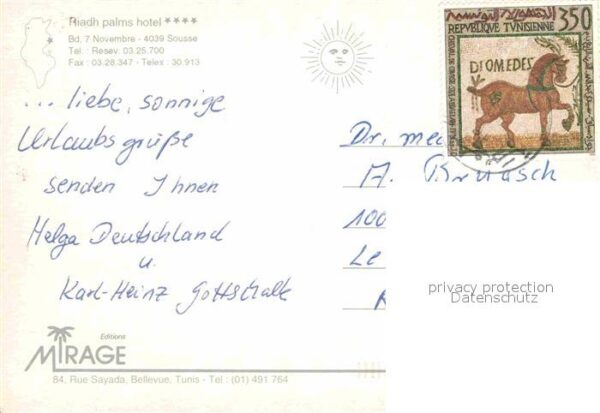 Riadh palms hotel ****
Bd. 7 Novembre - 4039 Sousse
Tel : Resev. 03.25.700
Fax : 03.28.347 - Telex : 30.913
REPVBLIQVE TVNISIENNE 350
DIOMEDES
... liebe, sonnige
Urlaubsgrüße
senden Ihnen
Helga Deutschland
u.
Karl-Heinz Gottschalk
Dr. med
A.
100
Le
privacy protection
Datenschutz
Editions
MIRAGE
84, Rue Sayada, Bellevue, Tunis - Tel : (01) 491 764